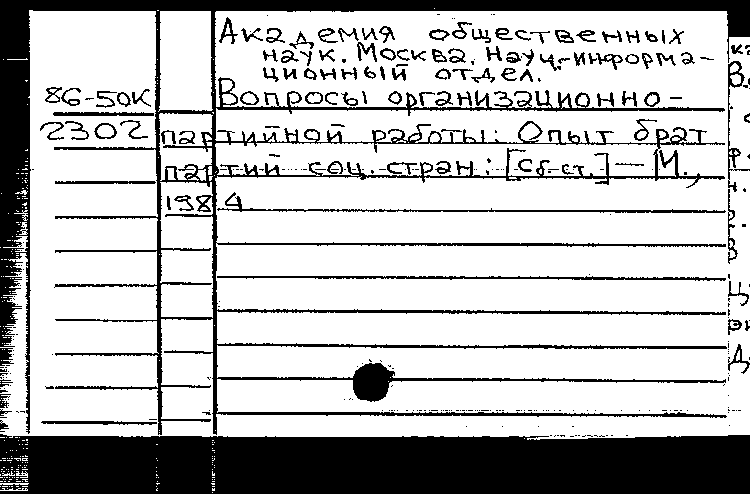 Академия общественных
наук. Москва. Науч.-информа-
ционный отдел.
86-50К Вопросы организационно-
2302 партийной работы: Опыт брат
партий соц. стран: [Сб. ст.] — М.,
1984